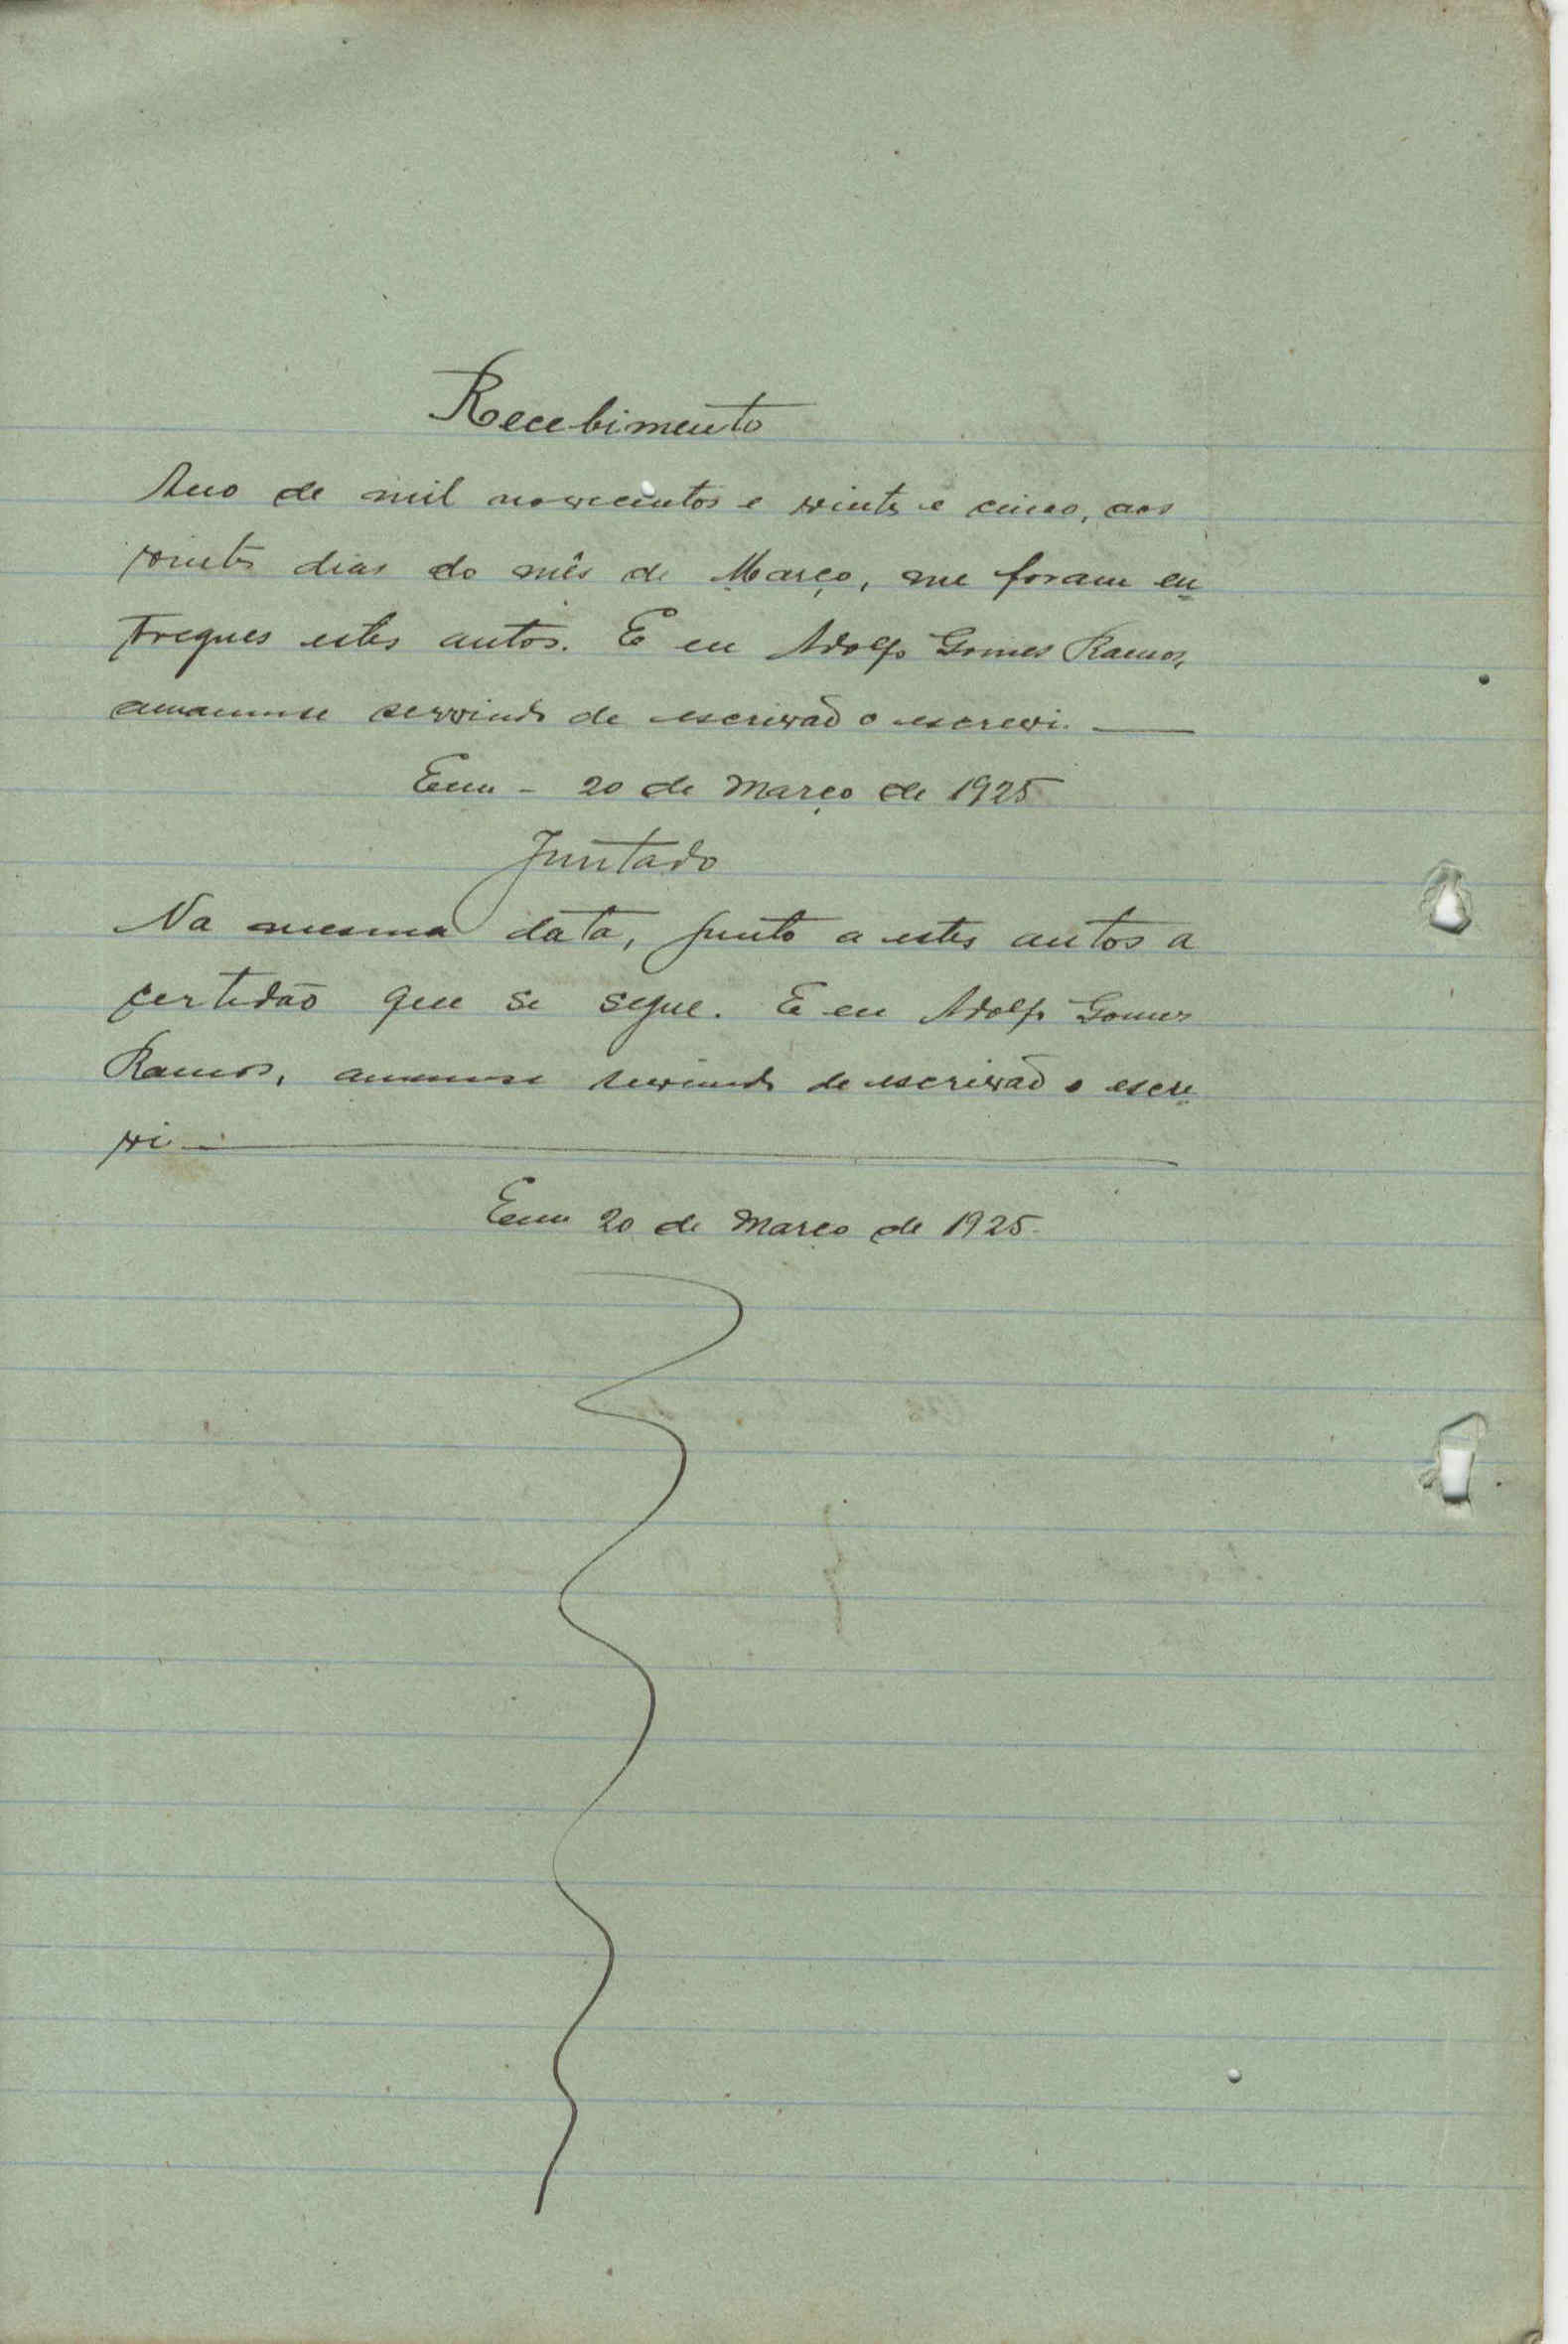 Recebimento
Ano de mil novecentos e vinte e cinco, aos
vinte dias do mês de Março, me foram en
tregues estes autos. E eu Adolfo Gomes Ramos,
amanuense servindo de escrivão o escrevi.
Em - 20 de Março de 1925
Juntado
Na mesma data, junto a estes autos a
certidão que se segue. E eu Adolfo Gomes
Ramos, amanuense servindo de escrivão o escre
vi
Em 20 de Março de 1925.